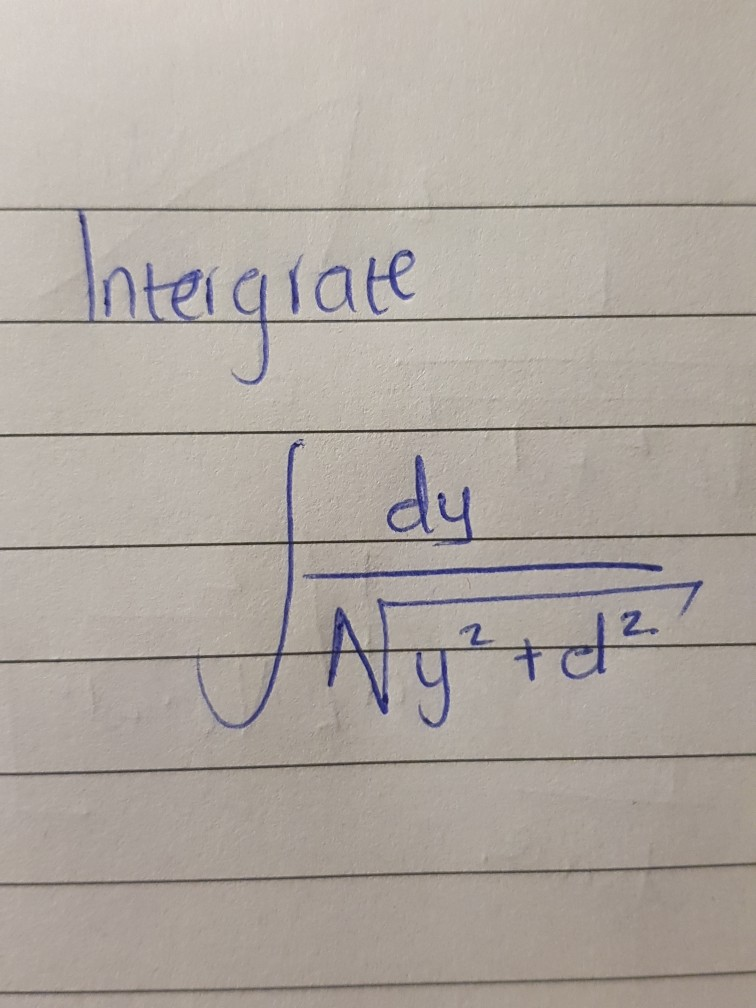 Intergrate
∫ dy / √(y² + d²)